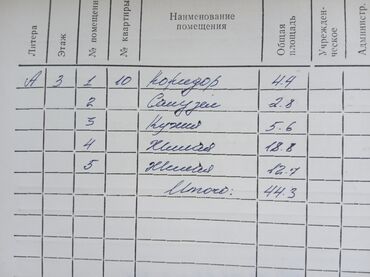 Литера Этаж № помещения № квартиры Наименование помещения Общая площадь Учрежден-ческое Администр.
А 3 1 10 Коридор 4.9
2 Санузел 2.8
3 Кухня 5.6
4 Жилая 18.8
5 Жилая 12.7
Итого: 44.3